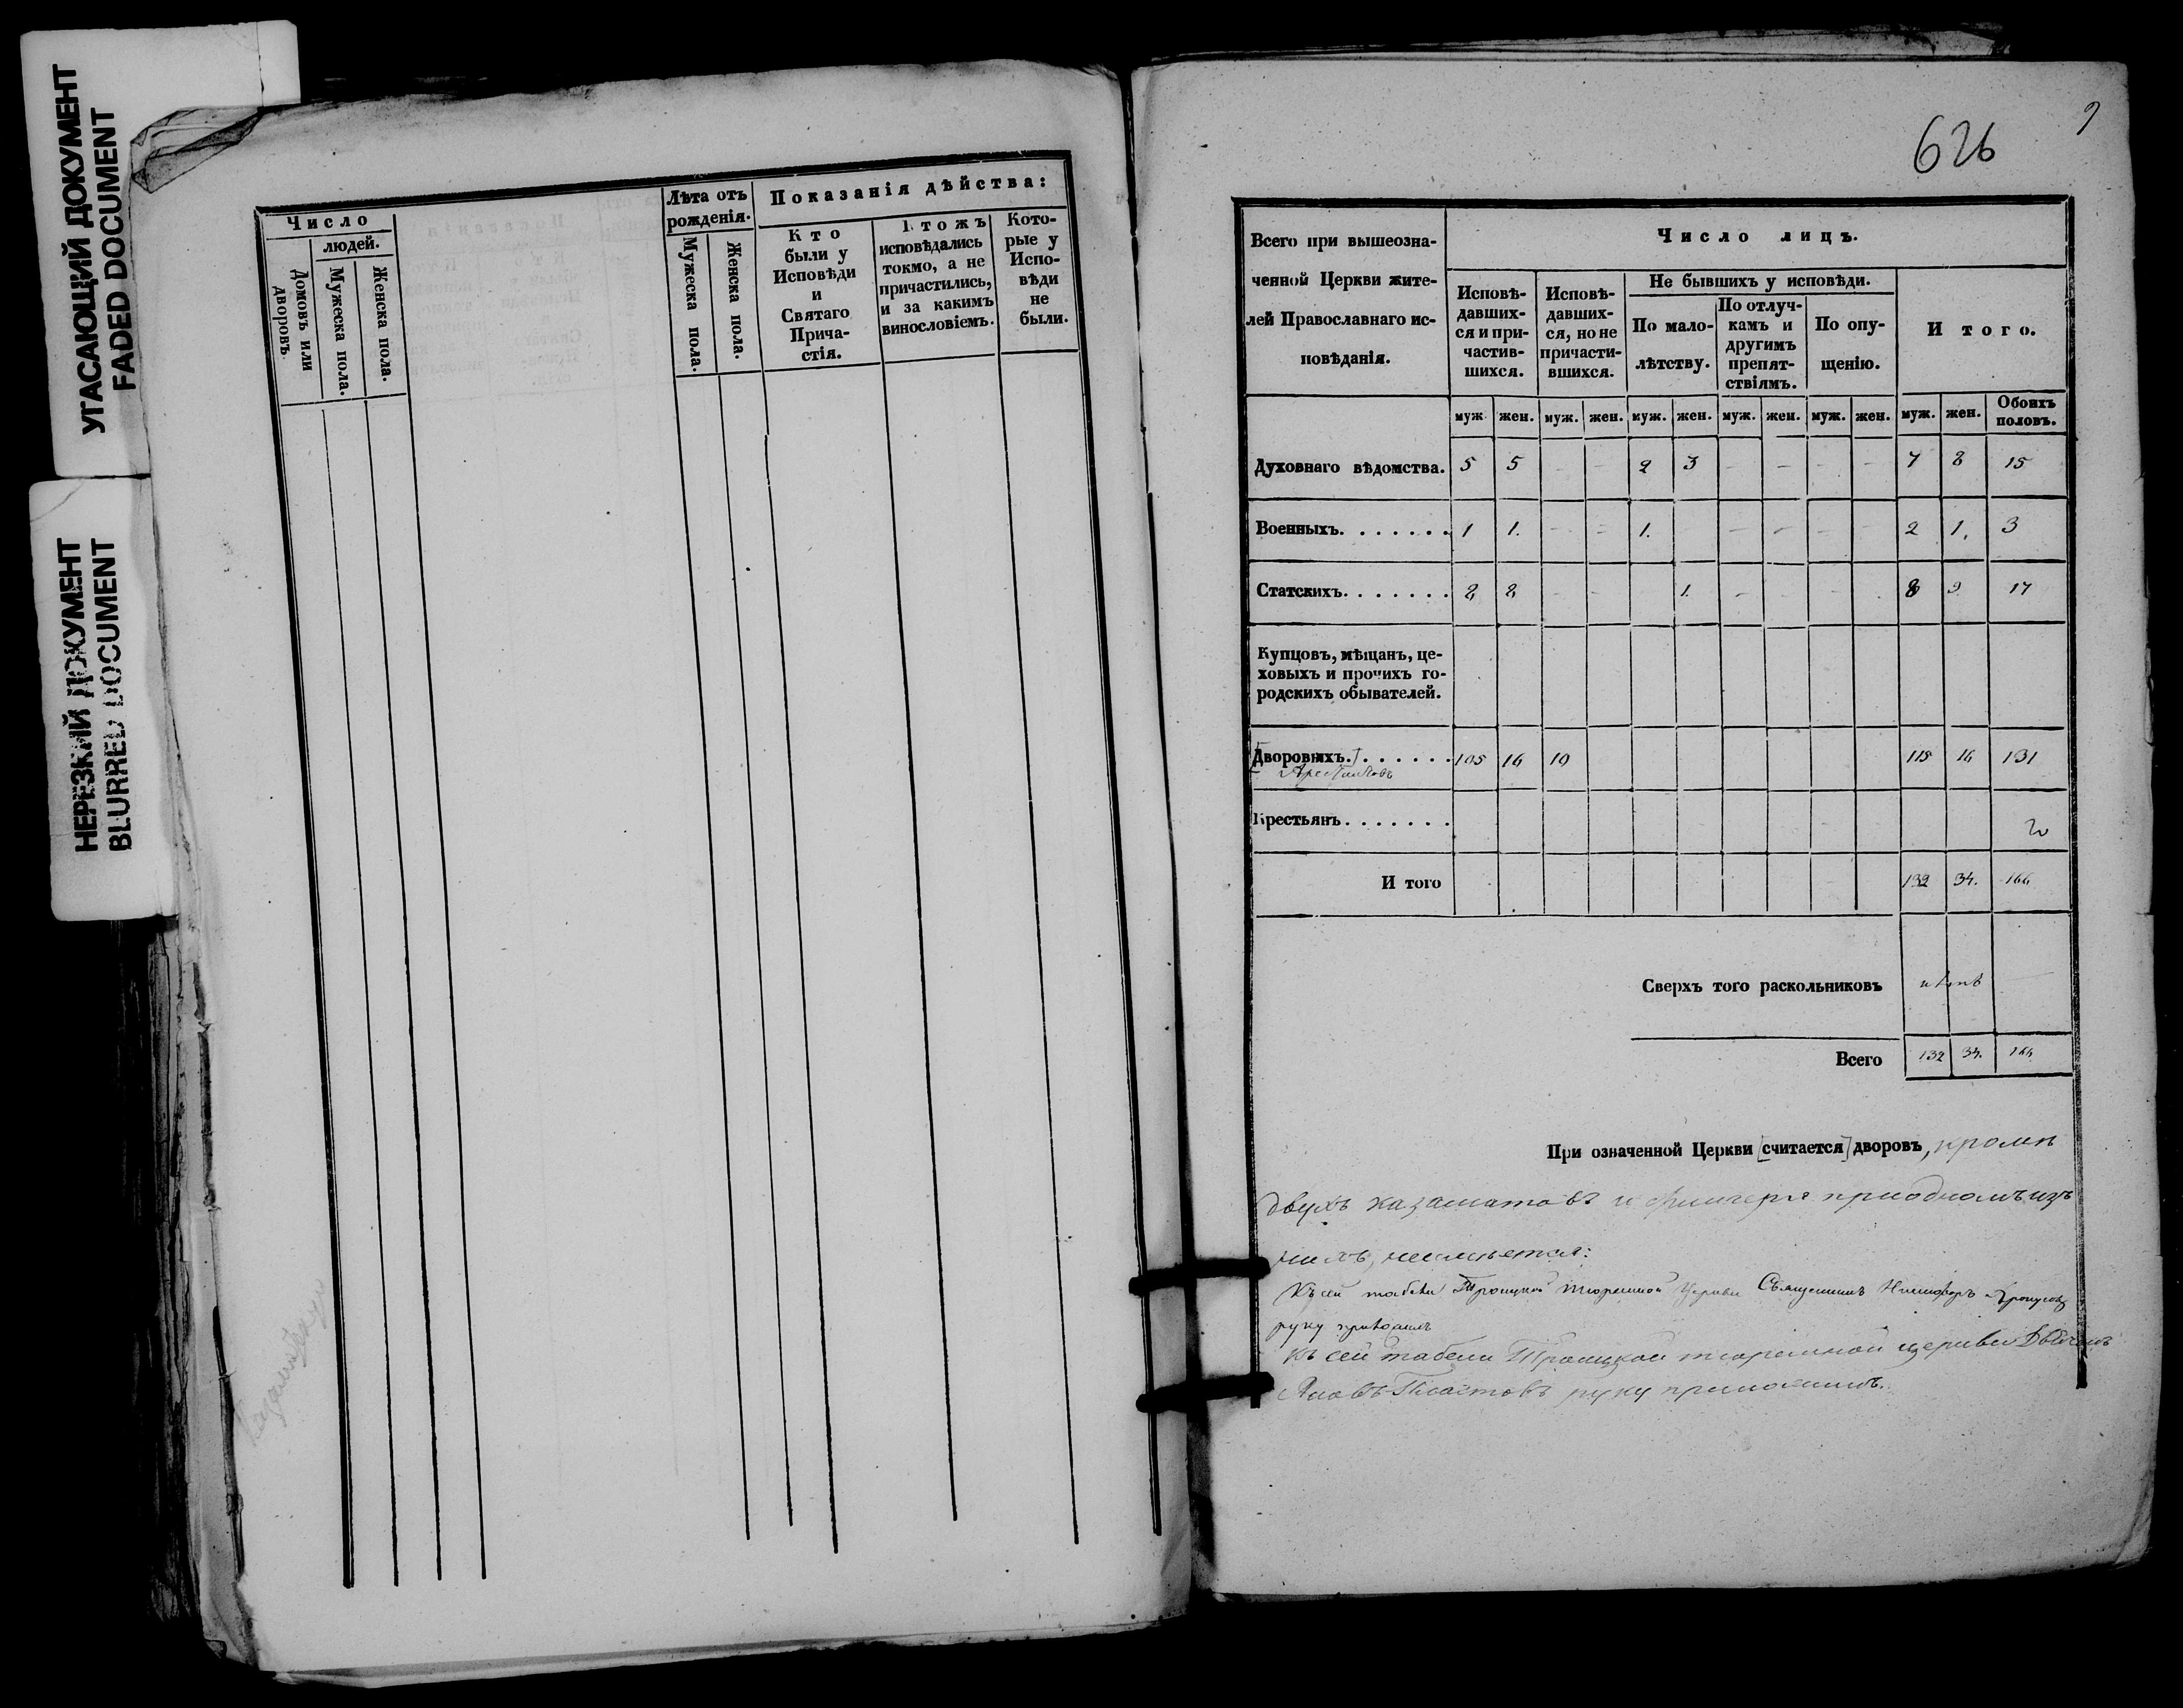 УГАСАЮЩИЙ ДОКУМЕНТ
FADED DOCUMENT
НЕРЕЗКИЙ ДОКУМЕНТ
BLURRED DOCUMENT
Число
людей.
Домовъ или дворовъ.
Мужеска пола.
Женска пола.
Лѣта отъ
рожденія.
Мужеска пола.
Женска пола.
Показанія дѣйства:
Кто
были у
Исповѣди
и
Святаго
Прича-
стія.
тожъ
исповѣдались
токмо, а не
причастились,
и за какимъ
винословіемъ.
Кото-
рые у
Испо-
вѣди
не
были.
626
Всего при вышеозна-
ченной Церкви жите-
лей Православнаго ис-
повѣданія.
Число лицъ.
Исповѣ-
давших-
ся и при-
частив-
шихся.
Исповѣ-
давших-
ся, но не
причасти-
вшихся.
Не бывшихъ у исповѣди.
По мало-
лѣтству.
По отлуч-
камъ и
другимъ
препят-
ствіямъ.
По опу-
щенію.
И того.
муж. жен. муж. жен. муж. жен. муж. жен. муж. жен. муж. жен. Обоихъ половъ.
Духовнаго вѣдомства. 5 5 – – 2 3 – – – – 7 8 15
Военныхъ. . . . . . . 1 1. – – 1. – – – – 2 1. 3
Статскихъ. . . . . . . 8 8 – – 1. – – – 8 9 17
Купцовъ, мѣщанъ, це-
ховыхъ и прочихъ го-
родскихъ обывателей.
[Дворовыхъ.] . . . . . . 105 16 10 115 16 131
Арестантовъ
Крестьянъ . . . . . . .
И того 132 34. 166
Сверхъ того раскольниковъ нѣтъ –
Всего 132 34. 166
При означенной Церкви [считается] дворовъ, кромѣ
двухъ казаматовъ и при одномъ изъ
нихъ, неимѣется:
Къ сей табели Троицкой тюремной Церкви Священникъ Никифоръ
руку приложилъ
Къ сей табели Троицкой тюремной церкви Дьячекъ
руку приложилъ.